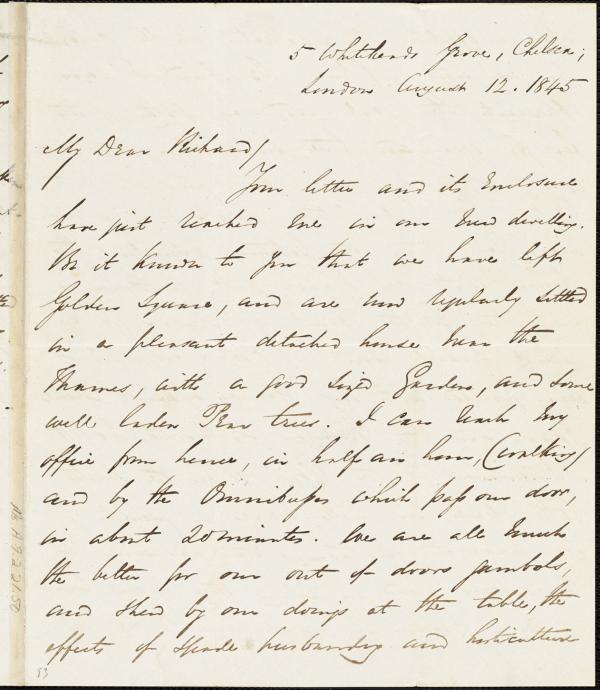 5 Whiteheads Grove, Chelsea;
London August 12. 1845
My Dear Richard/
Your letter and its Enclosure
have just reached me in our new dwelling.
Be it known to you that we have left
Golden Square, and are now regularly settled
in a pleasant detached house near the
Thames, with a good sized Garden, and some
well laden Pear trees. I can reach my
office from hence, in half an hour, (walking/
and by the Omnibusses which pass our door,
in about 20 minutes. We are all much
the better for our out of doors gambols,
and shew by our doings at the table, the
effects of spade husbandry and horticulture
53